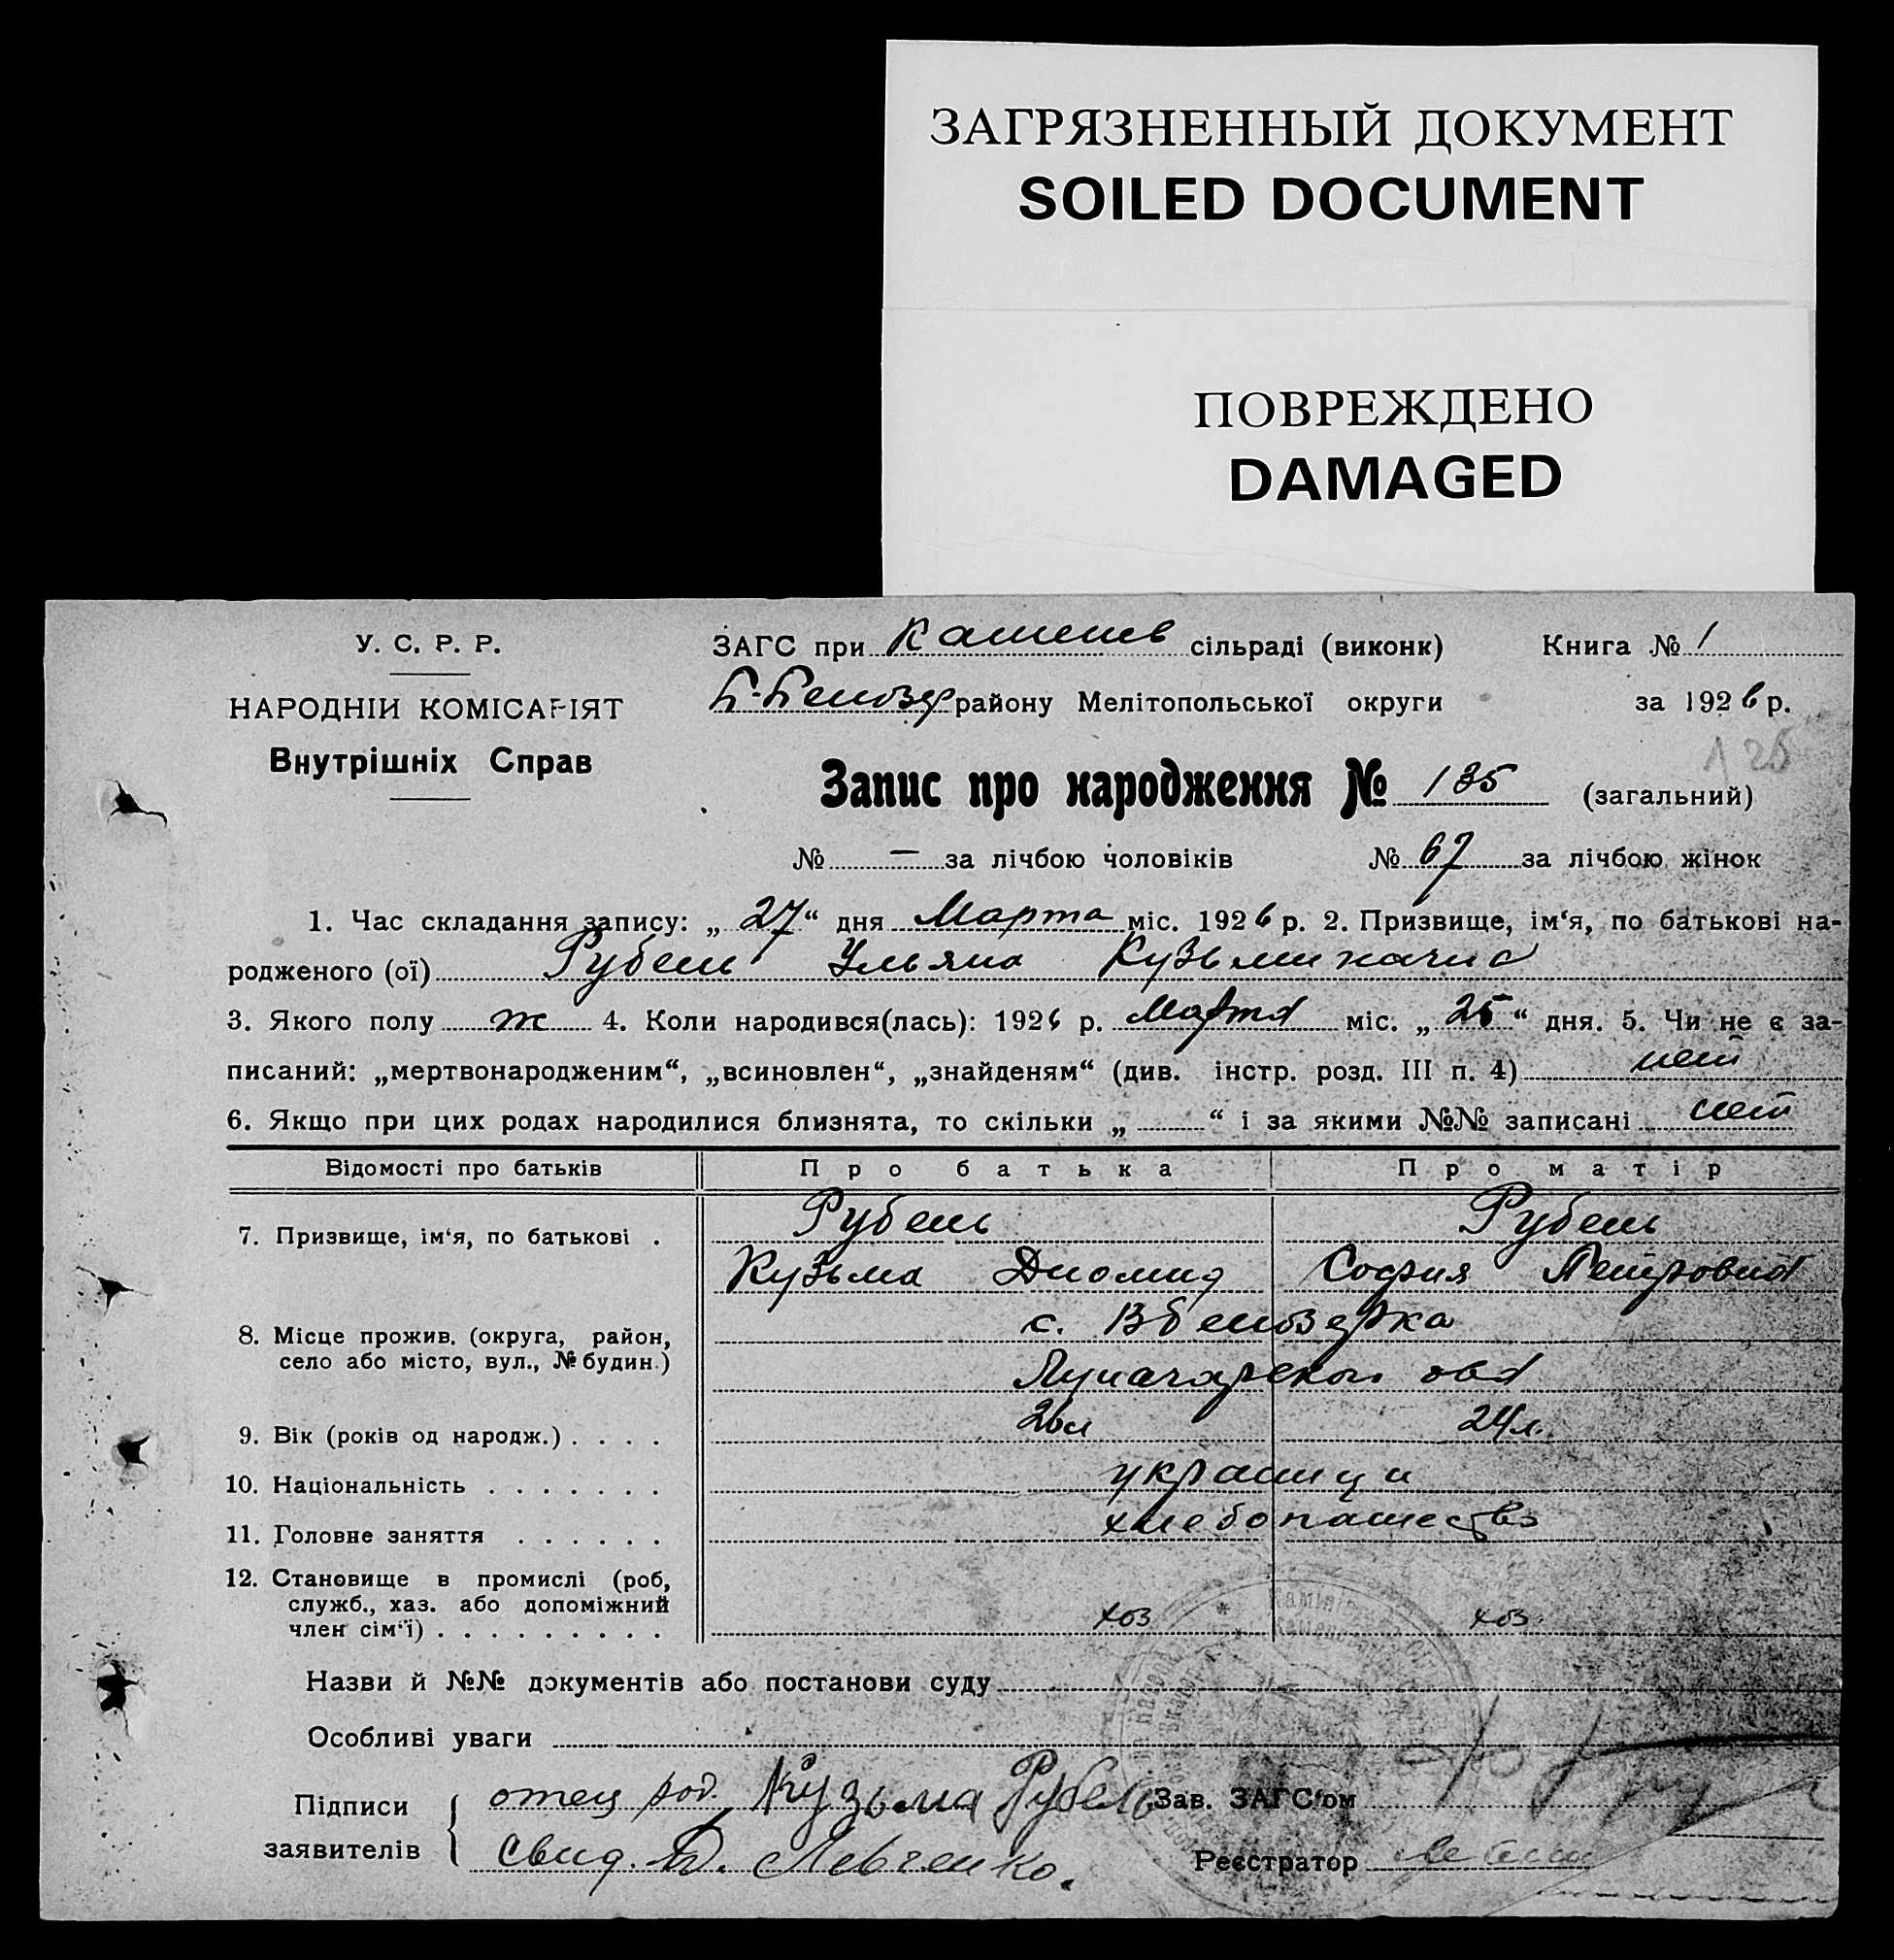 ЗАГРЯЗНЕННЫЙ ДОКУМЕНТ
SOILED DOCUMENT
ПОВРЕЖДЕНО
DAMAGED
У. С. Р. Р.
НАРОДНІИ КОМІСАРІЯТ
Внутрішніх Справ
ЗАГС при сільраді (виконк) Книга № 1
району Мелітопольської округи за 1926 р.
125
Запис про народження № 135 (загальний)
№ — за лічбою чоловіків № 67 за лічбою жінок
1. Час складання запису: „ 27 “ дня Марта міс. 1926 р. 2. Призвище, ім‘я, по батькові на-
родженого (ої) Рубель Ульяна
3. Якого полу ж 4. Коли народився(лась): 1926 р. Марта міс. „ 25 “ дня. 5. Чи не є за-
писаний: „мертвонародженим“, „всиновлен“, „знайденям“ (див. інстр. розд. III п. 4) нет
6. Якщо при цих родах народилися близнята, то скільки „ “ і за якими №№ записані нет
Відомості про батьків Про батька Про матір
7. Призвище, ім‘я, по батькові . Рубель Рубель
Кузьма Диомид София Петровна
8. Місце прожив. (округа, район,
село або місто, вул., № будин.)
с.
9. Вік (років од народж.) . . . . 26л 24л.
10. Національність . . . . . . . украинци
11. Головне заняття . . . . . . хлебопашество
12. Становище в промислі (роб,
служб., хаз. або допоміжний
член сім‘ї) . . . . . . . . . хоз хоз
Назви й №№ документів або постанови суду
Особливі уваги
Підписи заявителів
отец род. Кузьма Рубель Зав. ЗАГС‘ом
свид. Левченко. Реєстратор